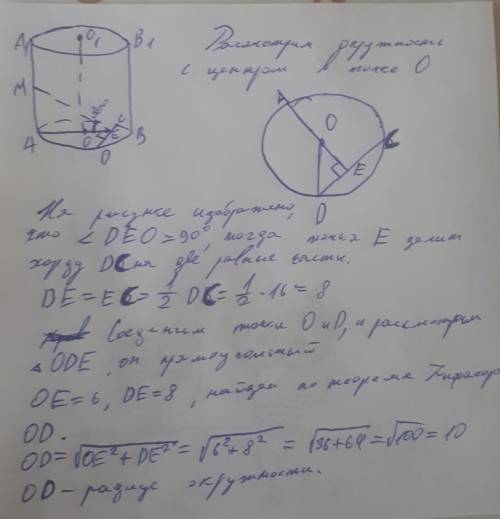 A₁ O₁ B₁
M
A O E C B
D
Рассмотрим окружность
с центром в точке O
A
O
C
E
D
На рисунке изображено,
что ∠DEO = 90°, тогда точка E делит
хорду DC на две равные части.
DE = EC = 1/2 DC = 1/2 · 16 = 8
Соединим точки O и D, и рассмотрим
△ ODE, он прямоугольный
OE = 6, DE = 8, найдём по теореме Пифагора
OD.
OD = √OE² + DE² = √6² + 8² = √36 + 64 = √100 = 10
OD - радиус окружности.